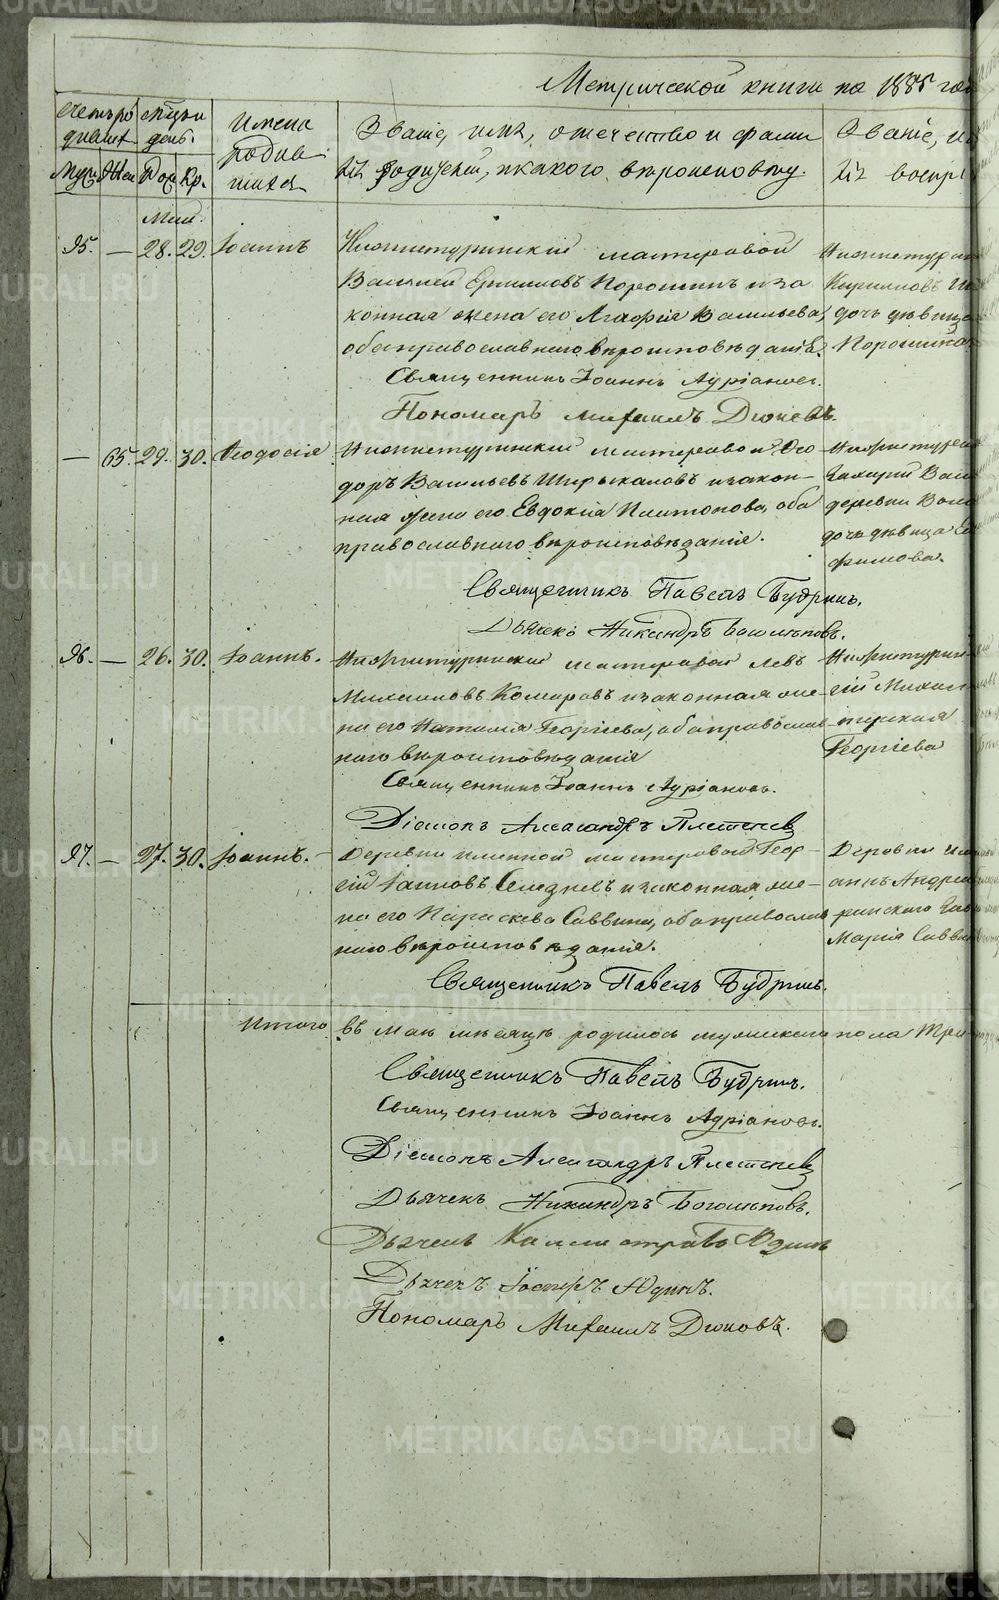 Метрической книги на 1885 год
Счетъ родившихся
Мѣсяцъ и день.
Муж. Жен. Рож. Кр.
Имена родившихся
Званіе, имя, отчество и фами
лія родителей, и какого вѣроисповѣд.
Званіе, и
лія воспр
Май.
95 — 28. 29. Іоаннъ
Нижнетуринскій мастеровой
Василий Ермиловъ Порошинъ и за
конная жена его Агафія Васильева,
оба православнаго вѣроисповѣданія.
Священникъ Іоаннъ Адріановъ.
Пономарь Михаилъ Дюковъ.
Нижнетурин
Кириловъ
дочь дѣвица
Порошина
— 65. 29. 30. Ѳеодосія
Нижнетуринскій мастеровой Ѳео
доръ Васильевъ Ширыкаловъ и закон-
ная жена его Евдокія Платонова, оба
православнаго вѣроисповѣданія.
Священникъ Павелъ Будринъ.
Дьячекъ Никандръ Боголѣповъ.
Нижнетурин
Васи
деревни
дочь дѣвица
фимова.
96. — 26. 30. Іоаннъ.
Нижнетуринскій мастеровой Левъ
Михаиловъ Комаровъ и законная же-
на его Наталія Георгіева, оба православ
наго вѣроисповѣданія
Священникъ Іоаннъ Адріановъ.
Діаконъ Александръ Плетеневъ
Нижнетурин
гій Михаи
терская
Георгіева
97. — 27. 30. Іоаннъ. —
Деревни Именной мастеровой Геор-
гій Іаковъ Селезневъ и законная же-
на его Параскева Саввина, оба православ
наго вѣроисповѣданія.
Священникъ Павелъ Будринъ.
Деревни Им
аннъ Андрее
ринскаго
Марія Саввин
Итого въ маѣ мѣсяцѣ родилось мужескаго пола Три
Священникъ Павелъ Будринъ.
Священникъ Іоаннъ Адріановъ.
Діаконъ Александръ Плетеневъ
Дьячекъ Никандръ Боголѣповъ.
Дьячекъ Каллистратъ Юдинъ
Дьячекъ Іосифъ Юдинъ.
Пономарь Михаилъ Дюковъ.
METRIKI.GASO-URAL.RU